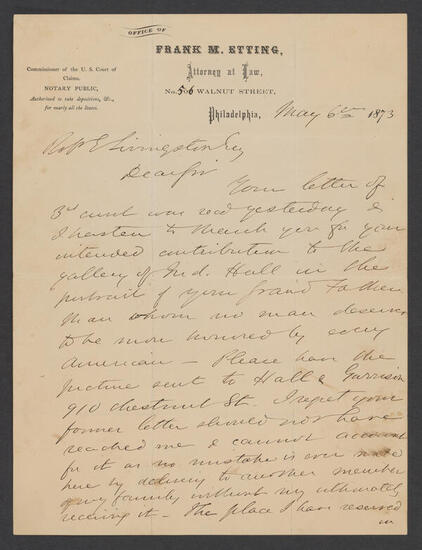 OFFICE OF
FRANK M. ETTING,
Attorney at Law,
No. 506 WALNUT STREET,
Philadelphia, May 6th 1873
Commissioner of the U. S. Court of
Claims.
NOTARY PUBLIC,
Authorized to take depositions, &c.,
for nearly all the States.
Robt E Livingston Esq
Dear Sir
Your letter of
3d curt was recd yesterday &
I hasten to thank you for your
intended contribution to the
gallery of Ind. Hall in the
portrait of your Grand Father
than whom no man deserves
to be more honored by every
American — Please have the
picture sent to Hall & Garrison
910 Chestnut St. I regret your
former letter should not have
reached me I cannot account
for it as no mistake is ever made
here by delivery to another member
of my family without my ultimately
receiving it — The place I have reserved